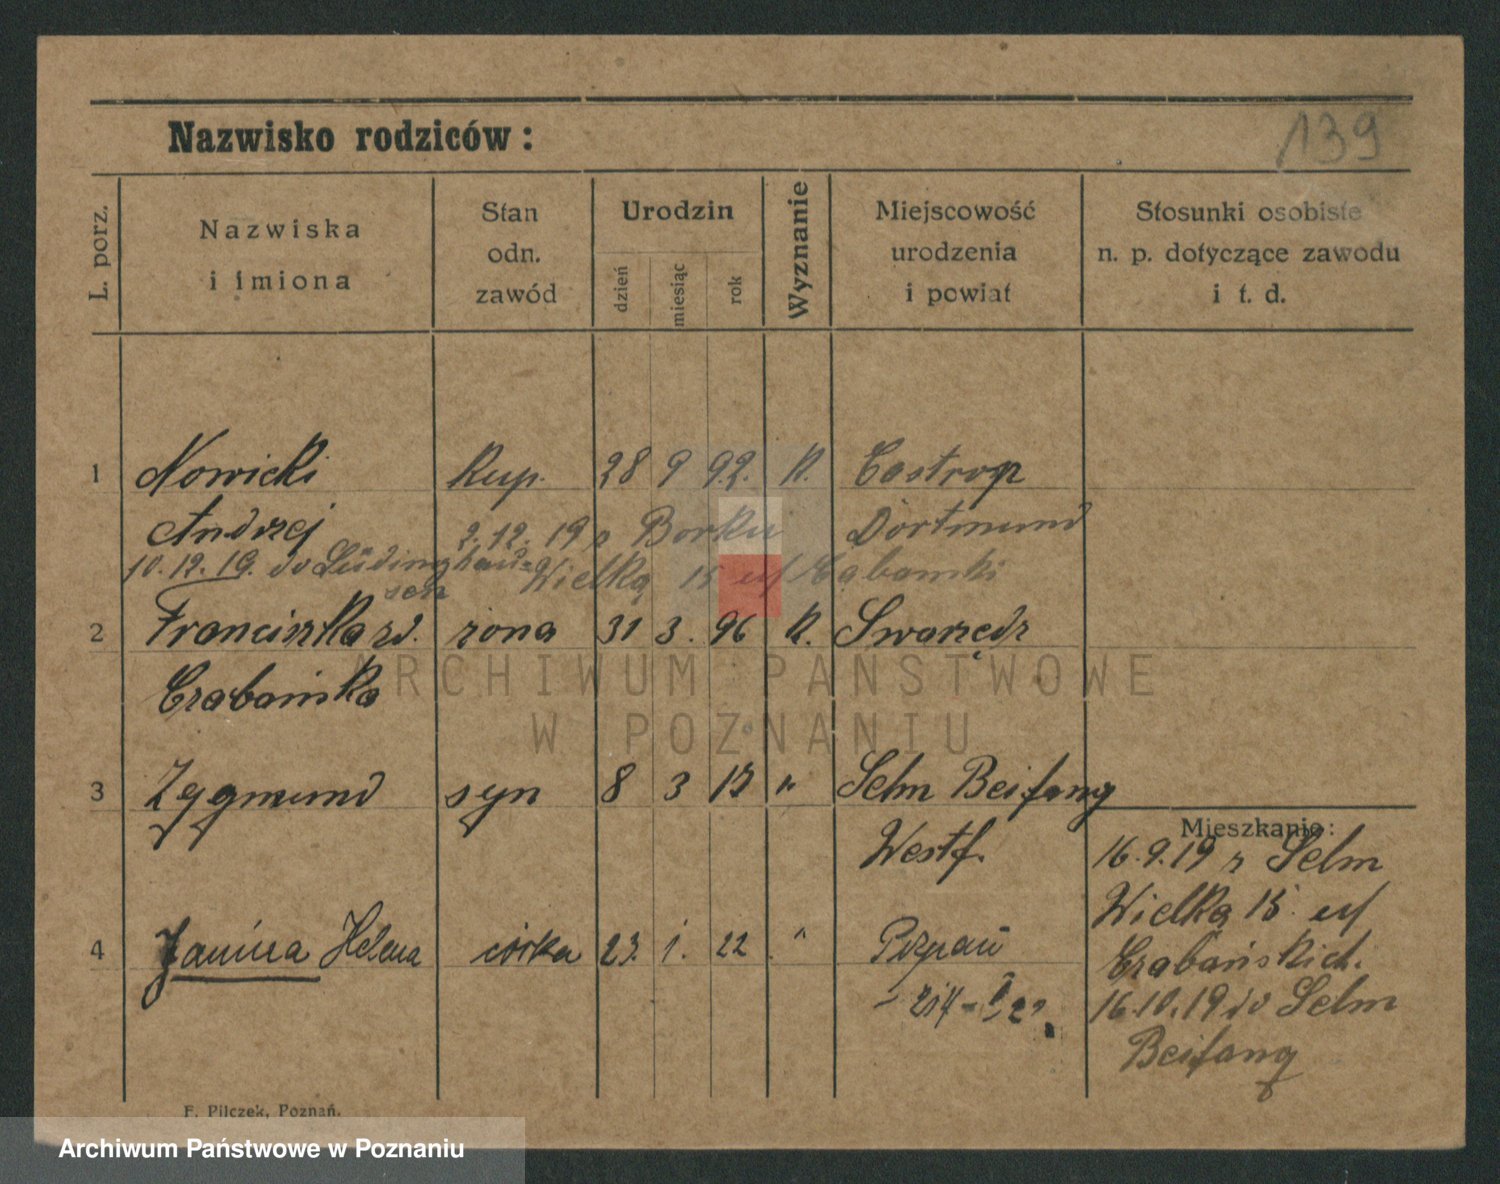 Nazwisko rodziców:
139
L. porz.
Nazwiska
i imiona
Stan
odn.
zawód
Urodzin
dzień
miesiąc
rok
Wyznanie
Miejscowość
urodzenia
i powiat
Stosunki osobiste
n. p. dotyczące zawodu
i t. d.
1 Nowicki Kup. 28 9 92. K. Castrop
Andrzej 2.12.19 z Borku Dortmund
10.12.19. do Lüdinghau-
sen Wielką 15
2 Franciszka zd. żona 31 3. 96 K. Swarzędz
Grabańska
ARCHIWUM PAŃSTWOWE
W POZNANIU
3 Zygmund syn 8 3 15 " Selm Beifang
Westf.
4 Janina Helena córka 23. 1. 22 " Poznań
Mieszkanie:
16.9.19 z Selm
Wielką 15
Grabańskich.
16.10.19 do Selm
Beifang
F. Pilczek, Poznań.
Archiwum Państwowe w Poznaniu